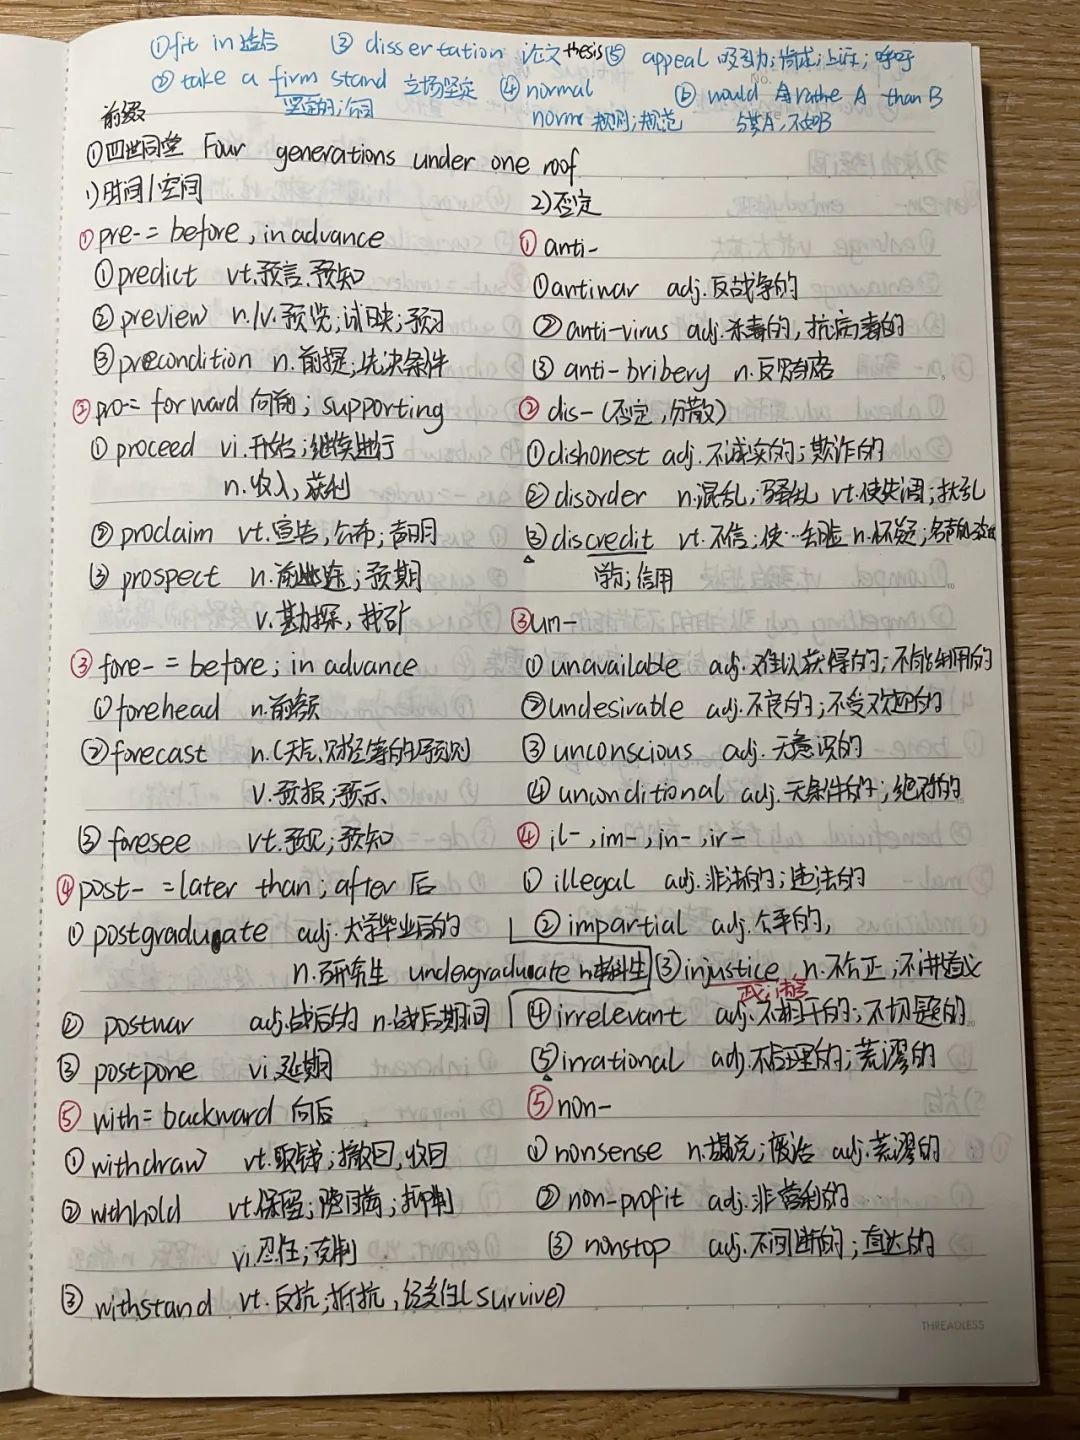 ①fit in 适合
③ dissertation 论文 thesis
⑤ appeal 吸引力;上诉;呼吁
② take a firm stand 立场坚定
坚定的;公司
④ normal
norm 规则;规范
⑥ would rathe A than B
前缀
①四世同堂 Four generations under one roof
1)时间/空间
①pre-= before, in advance
①predict vt.预言.预知
②preview n./v.预览;试映;预习
③precondition n.前提;先决条件
②pro-= forward 向前; supporting
①proceed vi.开始;继续进行
n.收入,获利
②proclaim vt.宣告,公布;声明
③prospect n.前途;预期
v.勘探,找矿
③fore- = before; in advance
①forehead n.前额
②forecast n.(天气、财经等的)预测
v.预报;预示
③foresee vt.预见;预知
④post- =later than; after 后
①postgraduate adj.大学毕业后的
n.研究生 undergraduate n.本科生
②postwar adj.战后的 n.战后期间
③postpone vi.延期
⑤with= backward 向后
①withdraw vt.取钱;撤回,收回
②withhold vt.保留;隐瞒;抑制
vi.忍住;克制
③withstand vt.反抗;抵抗,经受住(survive)
2)否定
①anti-
①antiwar adj.反战争的
②anti-virus adj.杀毒的,抗病毒的
③anti-bribery n.反贿赂
②dis-(否定,分散)
①dishonest adj.不诚实的;欺诈的
②disorder n.混乱;骚乱 vt.使失调;扰乱
③discredit vt.不信;使…丢脸 n.怀疑;
学分;信用
③un-
①unavailable adj.难以获得的;不能利用的
②undesirable adj.不良的;不受欢迎的
③unconscious adj.无意识的
④unconditional adj.无条件的;绝对的
④il-,im-,in-,ir-
①illegal adj.非法的;违法的
②impartial adj.公平的,
③injustice n.不公正;不讲道义
④irrelevant adj.不相干的;不切题的
⑤irrational adj.不合理的;荒谬的
⑤non-
①nonsense n.胡说;废话 adj.荒谬的
②non-profit adj.非营利的
③nonstop adj.不间断的;直达的
THREADLESS